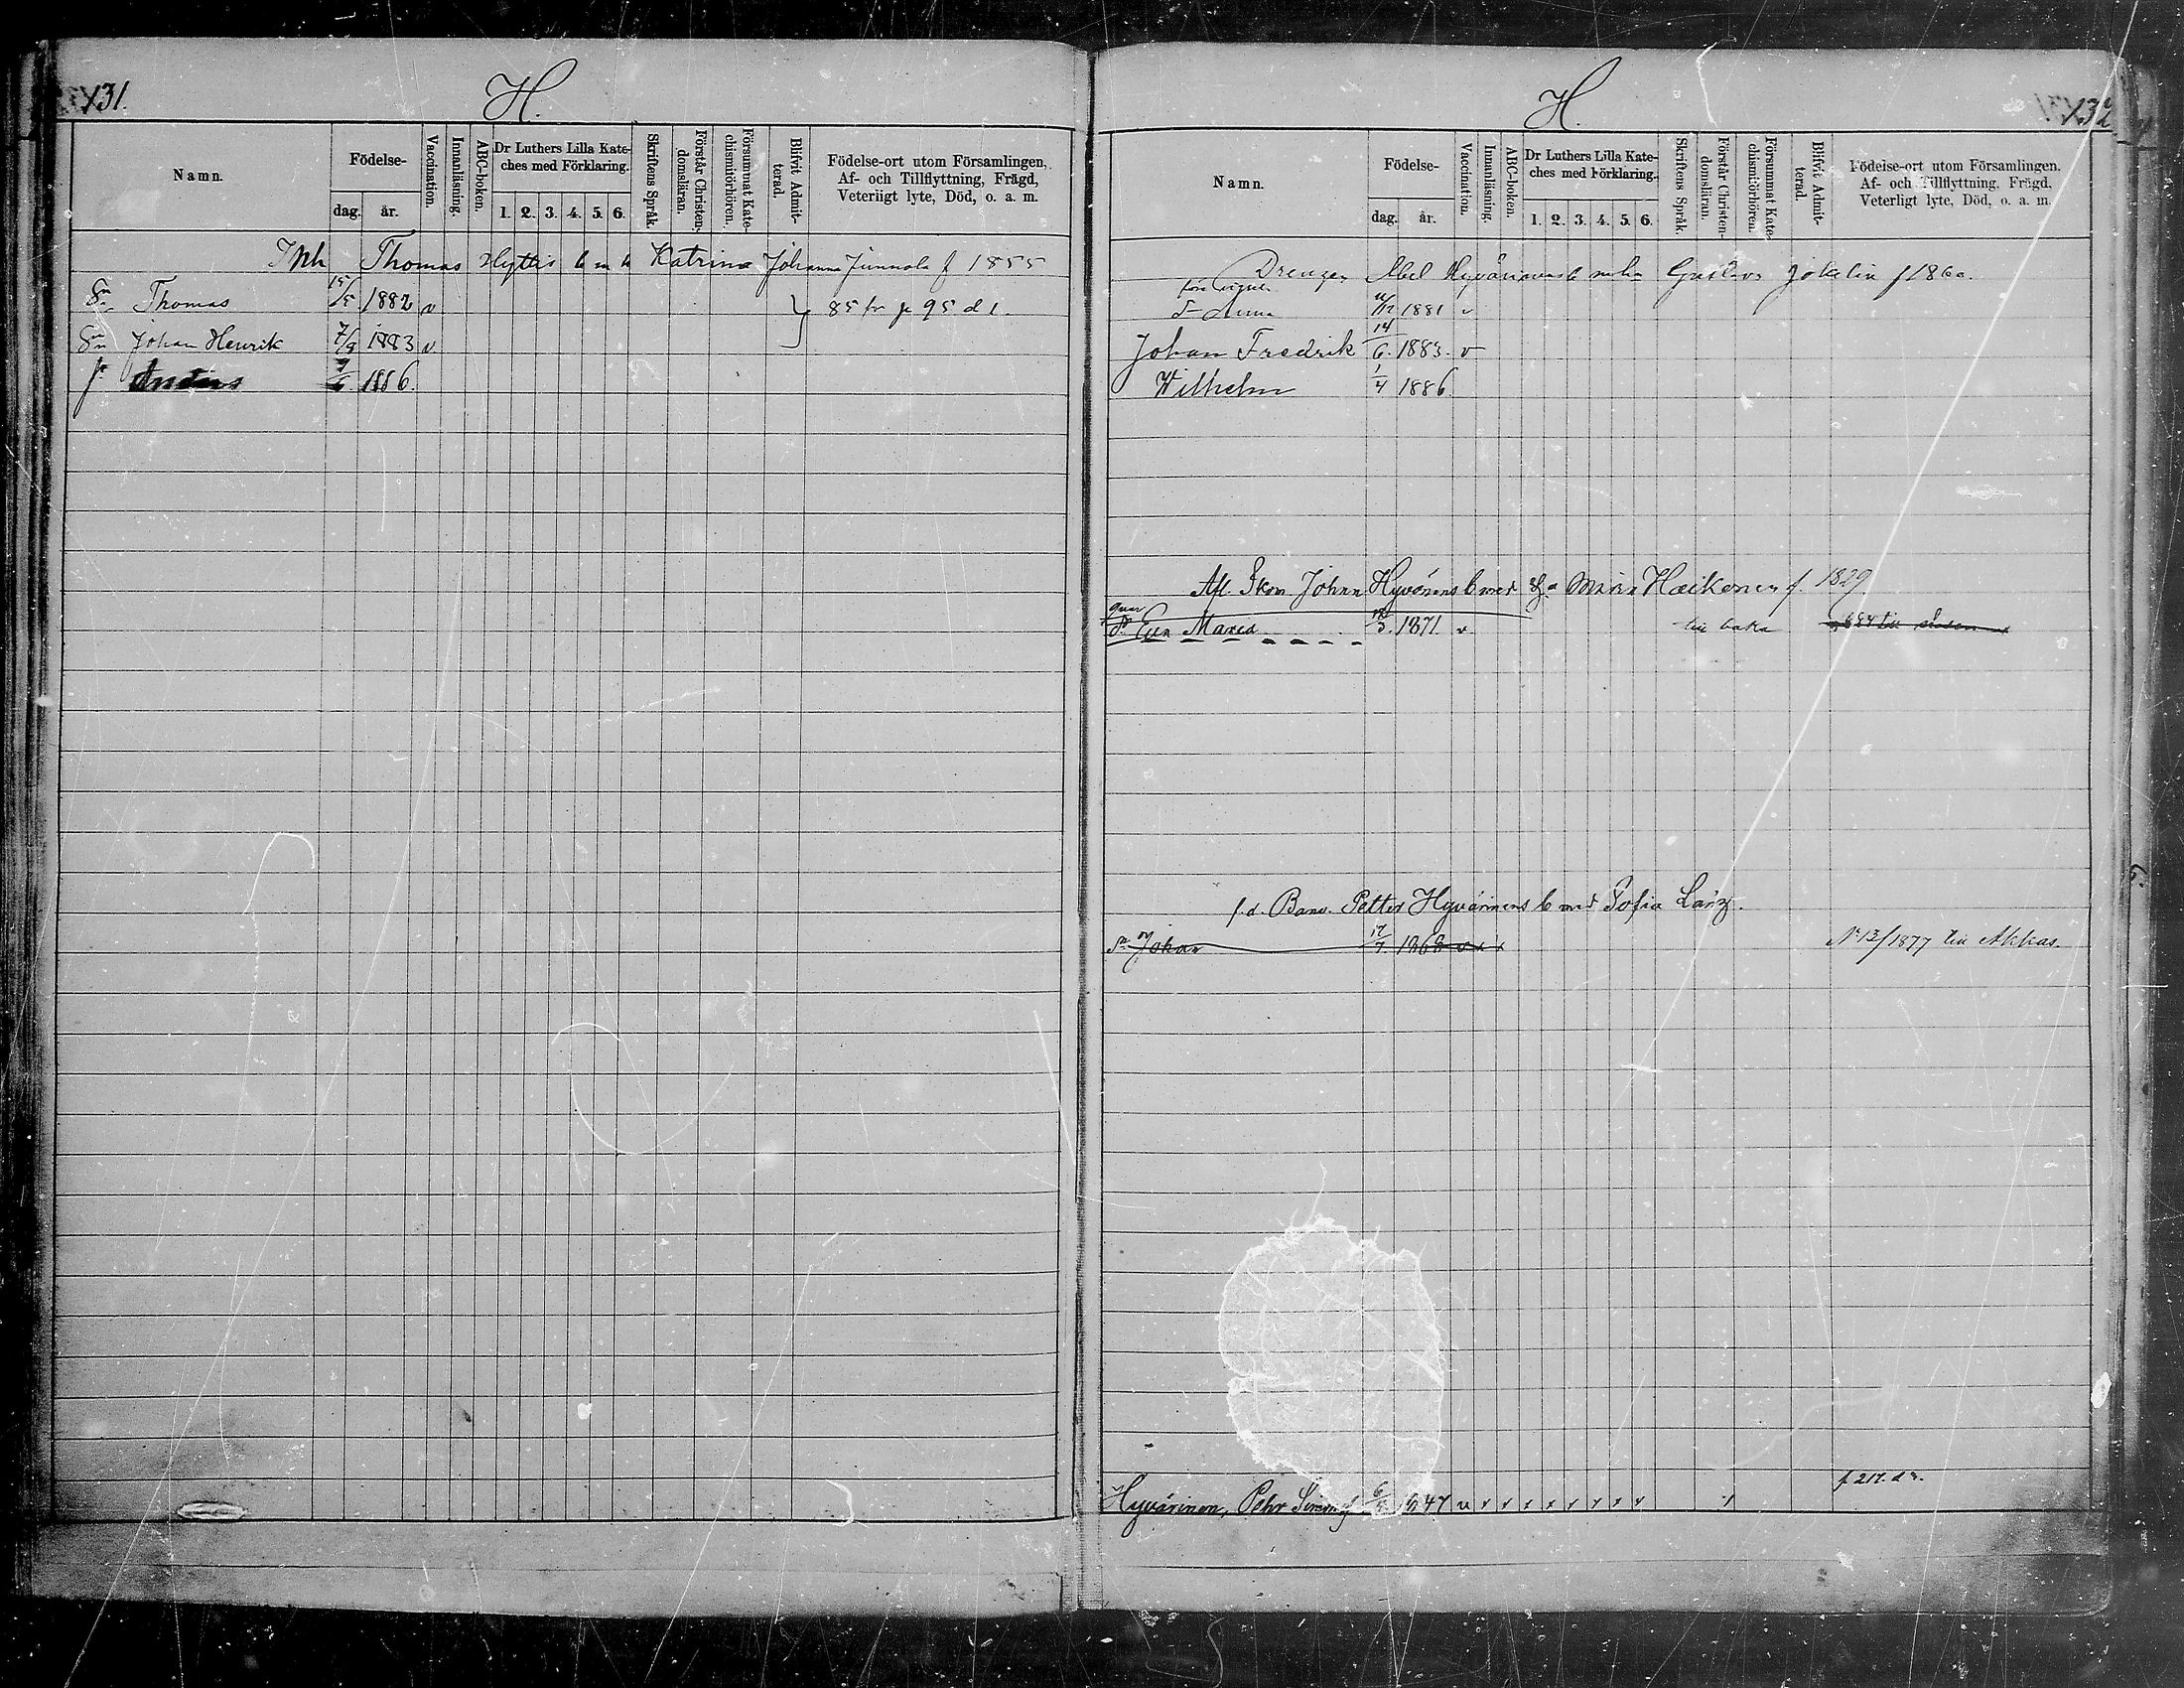 131.
H.
Namn.
Födelse-
dag.
år.
Vaccination.
Innanläsning.
ABC-boken.
Dr Luthers Lilla Kate-
ches med Förklaring.
1. 2. 3. 4. 5. 6.
Skriftens Språk.
Förstår Christen-
domsläran.
Försummat Kate-
chismiförhören.
Blifvit Admit-
terad.
Födelse-ort utom Församlingen,
Af- och Tillflyttning, Frägd,
Veterligt lyte, Död, o. a. m.
Thomas Hyttis b m h Katrina Johanna Junnola f 1855
Sn Thomas 15/5 1882 v 85 fr p 95 d 1.
Sn Johan Henrik 7/9 1883 v
Anders 9/6 1886.
H.
132
Namn.
Födelse-
dag.
år.
Vaccination.
Innanläsning.
ABC-boken.
Dr Luthers Lilla Kate-
ches med Förklaring.
1. 2. 3. 4. 5. 6.
Skriftens Språk.
Förstår Christen-
domsläran.
Försummat Kate-
chismiförhören.
Blifvit Admit-
terad.
Födelse-ort utom Församlingen.
Af- och Tillflyttning. Frägd.
Veterligt lyte, Död, o. a. m.
Drengen Abel Hyvärinens b m h Gustava Jokelin f 1860.
Anna 1881 v
Johan Fredrik 14/6. 1883. v
Wilhelm 1/4 1886.
Afl. Skom. Johan Hyvönens b med Maria Heikonen f. 1829
qvar
Eva Maria 1871. v till baka
f.d. Banv. Petter Hyvärinens b med Sofia Lärz.
Sn Johan 17/7. 1868 v x No 13/1877 till Akkas.
p 217. d 2.
Hyvärinen, Pehr 6/5 1847 v